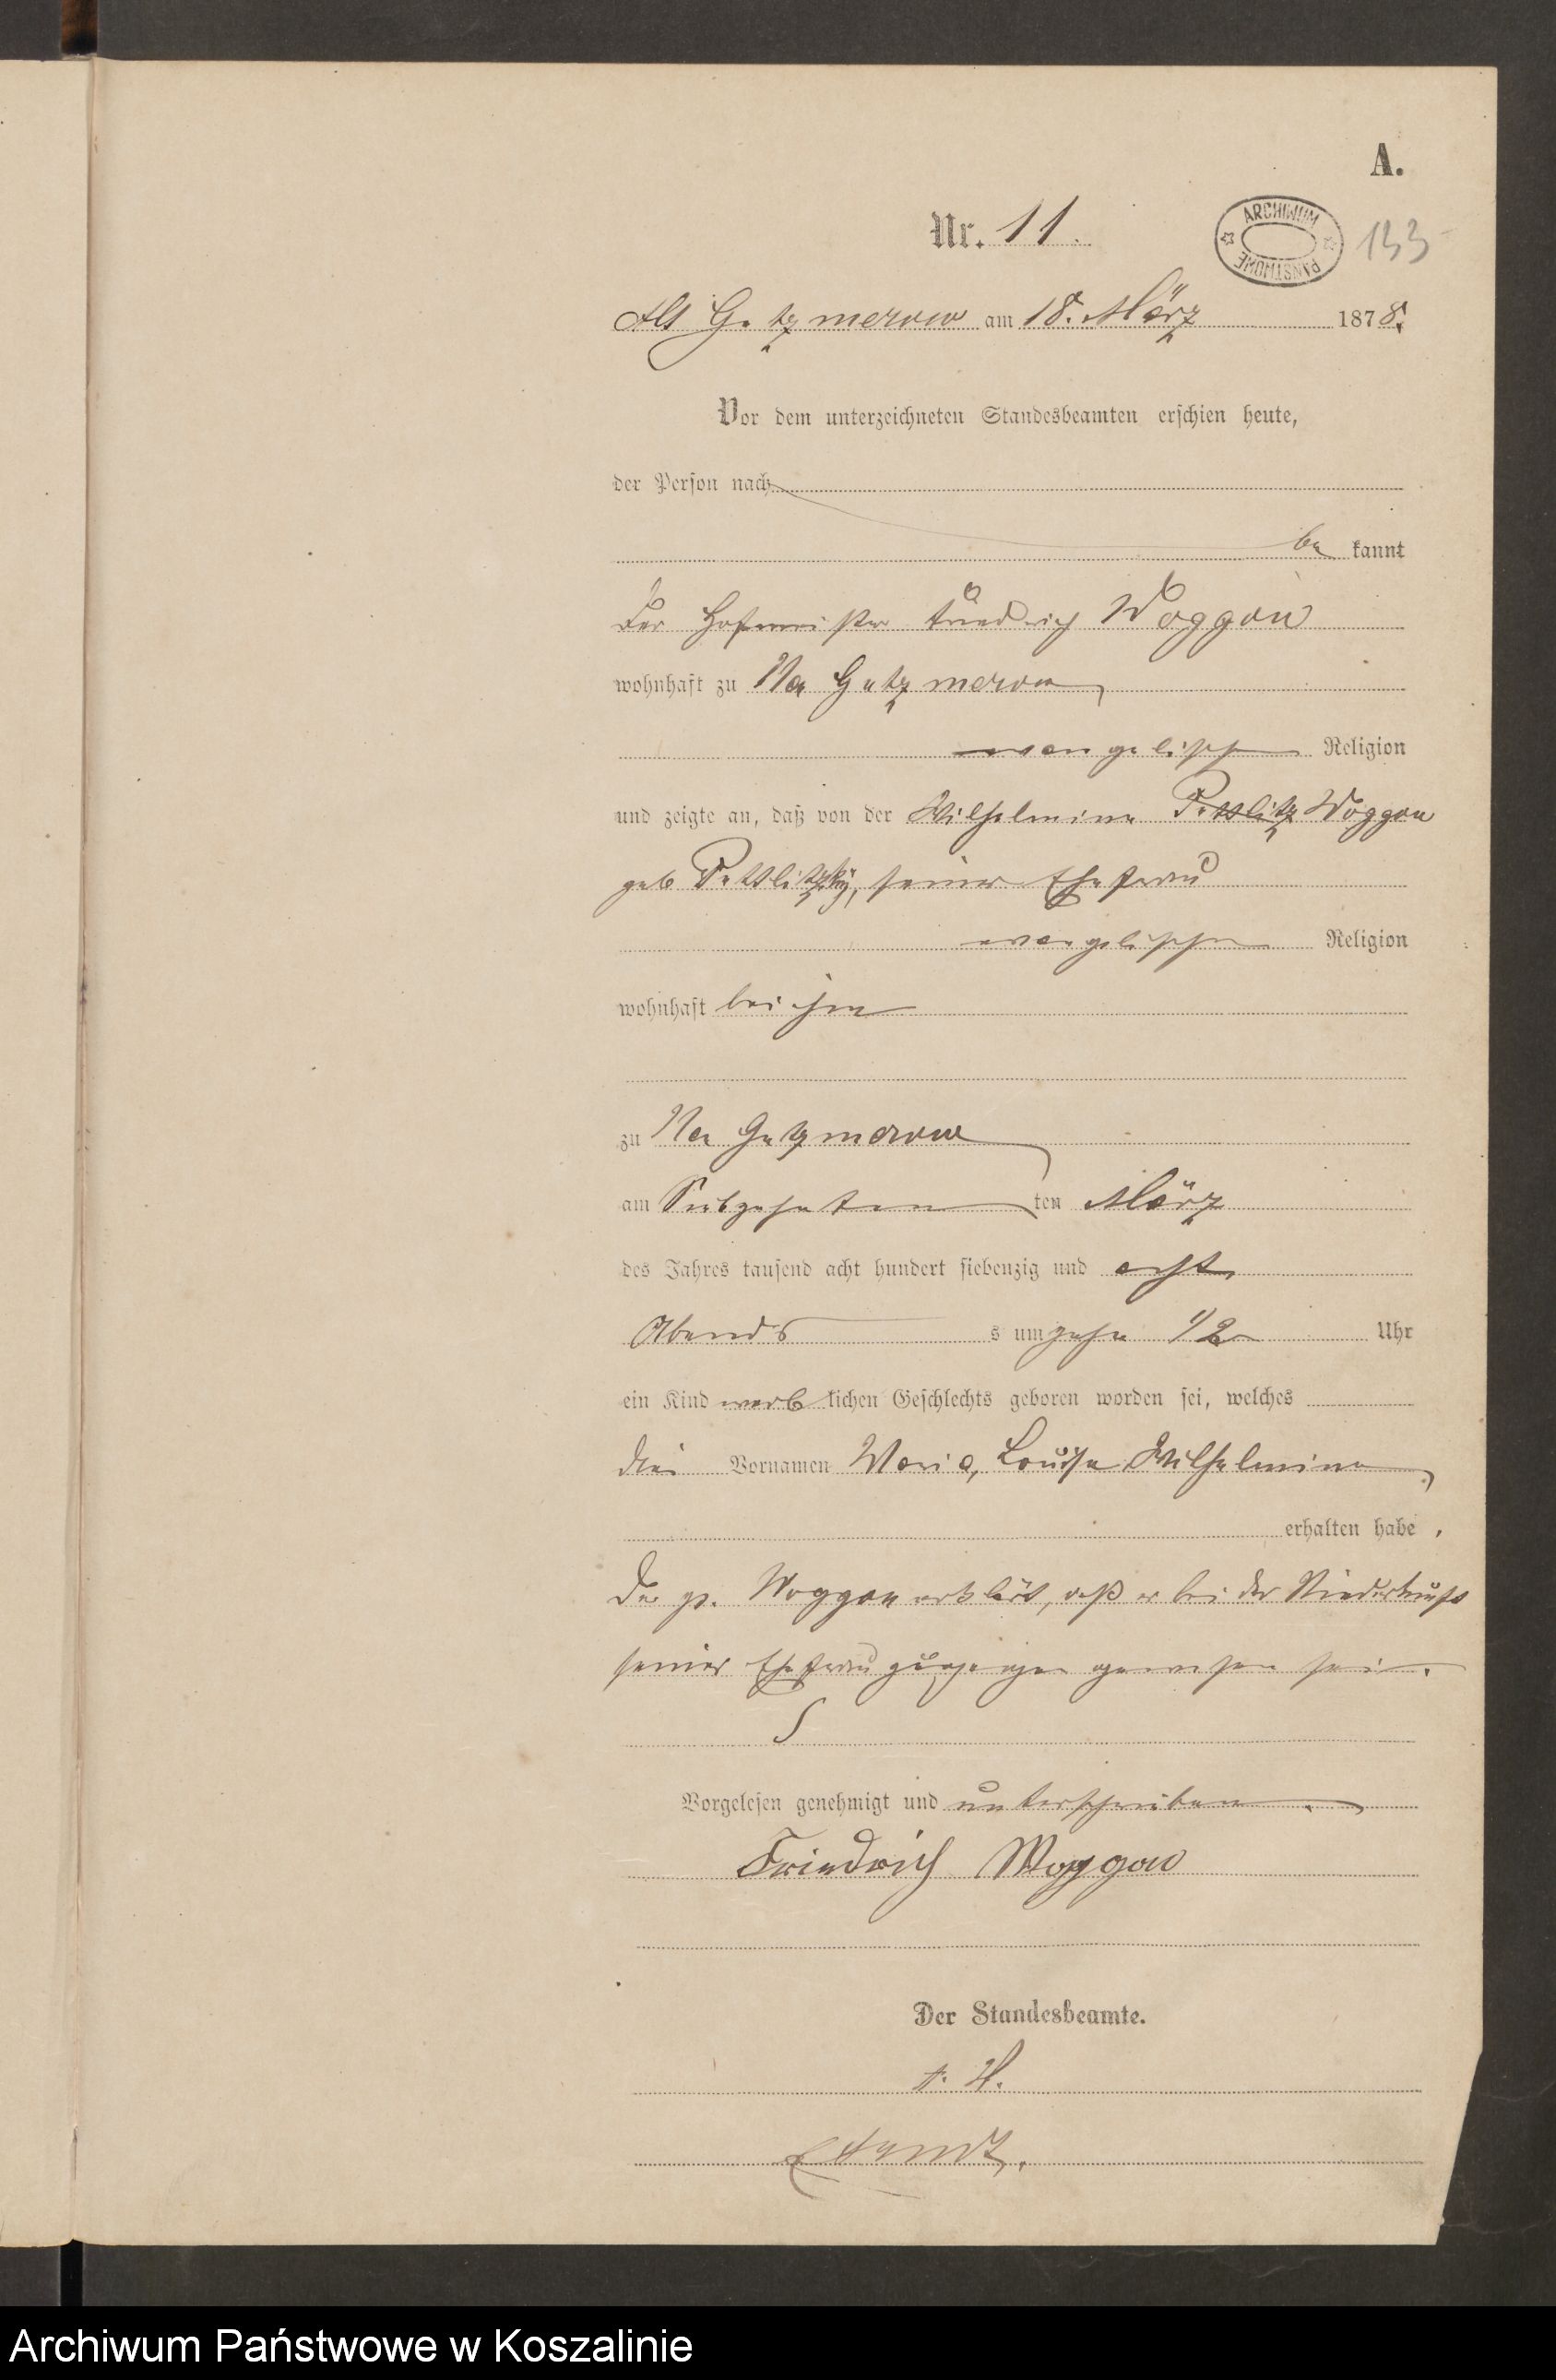 A.
Nr. 11.
ARCHIWUM PAŃSTWOWE
133
Alt Gutzmerow am 18. März 1878.
Vor dem unterzeichneten Standesbeamten erschien heute,
der Person nach
be kannt
der Hofmeister Friedrich Woggon
wohnhaft zu Neu Gutzmerow,
evangelischer Religion
und zeigte an, daß von der Wilhelmine Woggon
geb seiner Ehefrau
evangelischer Religion
wohnhaft bei ihm
zu Neu Gutzmerow
am Siebzehnten ten März
des Jahres tausend acht hundert siebenzig und acht
Abends s um zehn 1/2 Uhr
ein Kind weib lichen Geschlechts geboren worden sei, welches
drei Vornamen Maria, Louise Wilhelmine,
erhalten habe,
der p. Woggon erklärt, daß er bei der Niederkunft
seiner Ehefrau zugegen gewesen sei.
Vorgelesen genehmigt und unterschrieben.
Friedrich Woggon
Der Standesbeamte.
Archiwum Państwowe w Koszalinie